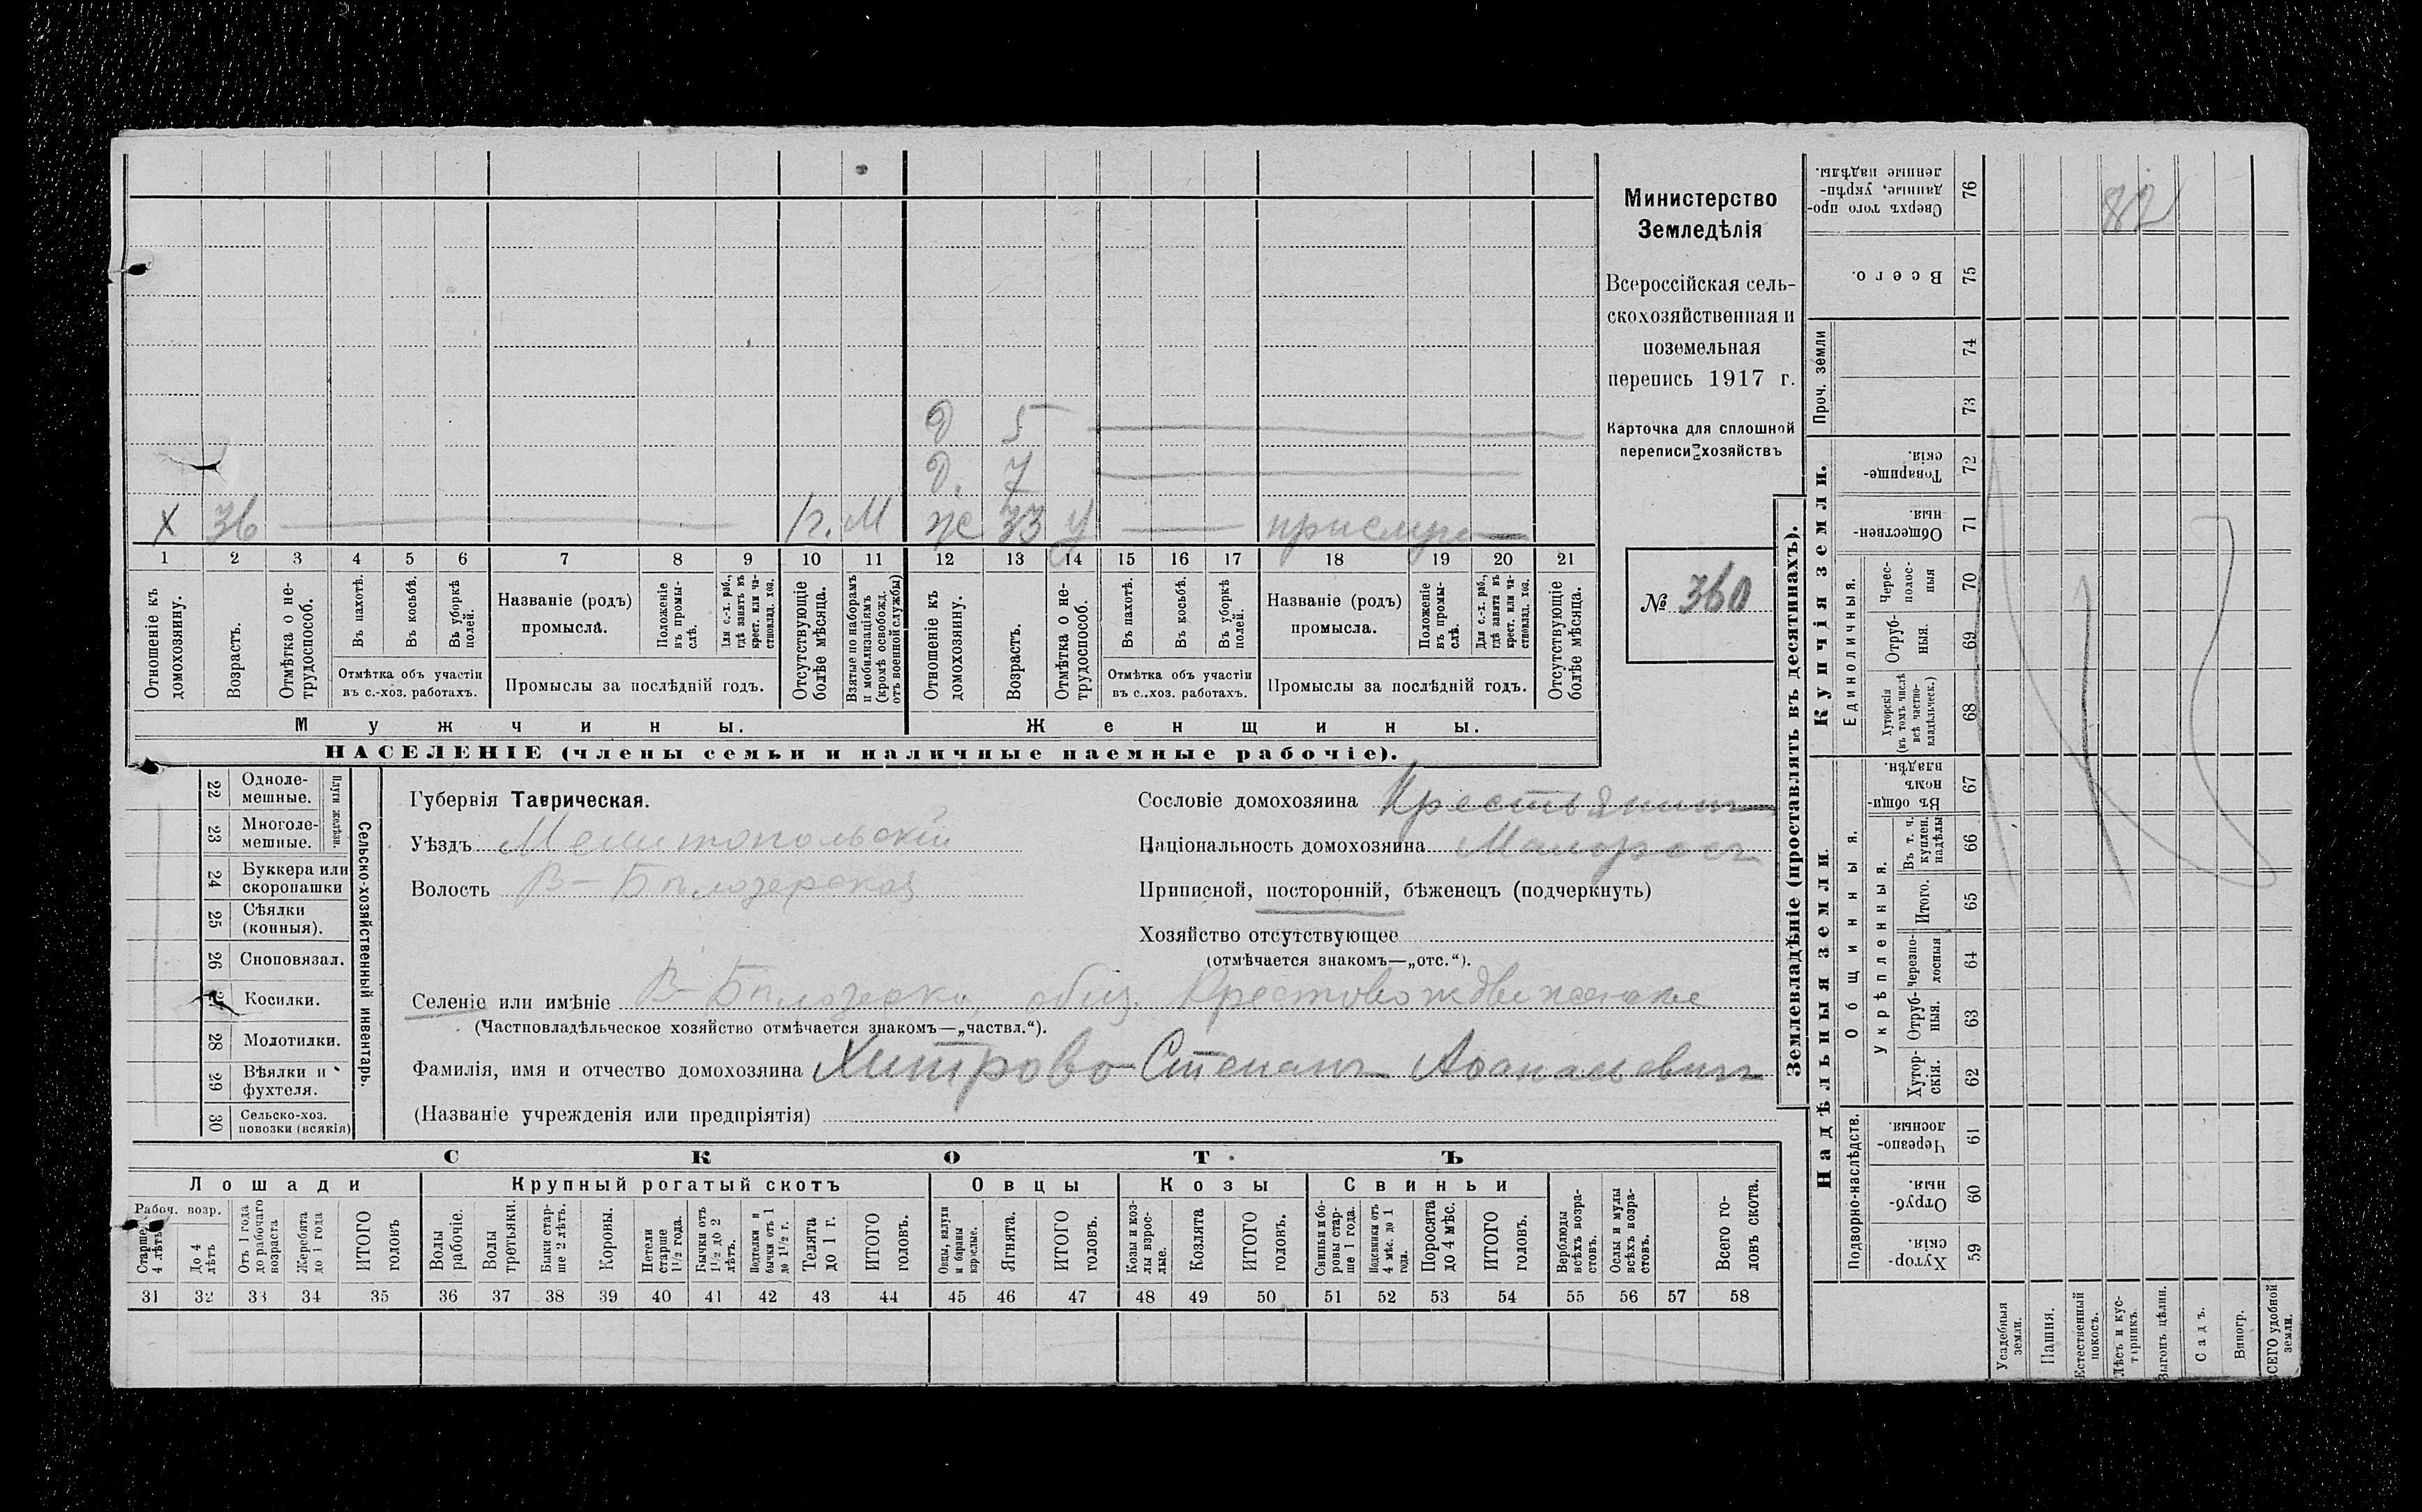 Министерство
Земледѣлія
Всероссійская сель-
скохозяйственная и
поземельная
перепись 1917 г.
Карточка для сплошной
переписи хозяйствъ
№ 360
д 5
д. 7
х 36 1г. М ж 33 У прислуг
1 2 3 4 5 6 7 8 9 10 11 12 13 14 15 16 17 18 19 20 21
Отношеніе къ домохозяину.
Возрастъ.
Отмѣтка о не-трудоспособ.
Въ пахотѣ.
Въ косьбѣ.
Въ уборкѣ полей.
Отмѣтка объ участіи въ с.-хоз. работахъ.
Названіе (родъ) промысла.
Положеніе въ промы-слѣ.
Для с.-х. раб., гдѣ занятъ въ крест. или ча-стновлад. хоз.
Промыслы за послѣдній годъ.
Отсутствующіе болѣе мѣсяца.
Взятые по наборамъ и мобилизаціямъ (кромѣ освобожд. отъ военной службы)
Отношеніе къ домохозяину.
Возрастъ.
Отмѣтка о не-трудоспособ.
Въ пахотѣ.
Въ косьбѣ.
Въ уборкѣ полей.
Отмѣтка объ участіи въ с.-хоз. работахъ.
Названіе (родъ) промысла.
Положеніе въ промы-слѣ.
Для с.-х. раб., гдѣ занята въ крест. или ча-стновлад. хоз.
Промыслы за послѣдній годъ.
Отсутствующіе болѣе мѣсяца.
Мужчины. Женщины.
НАСЕЛЕНІЕ (члены семьи и наличные наемные рабочіе).
22 Одноле-мешные.
23 Многоле-мешные.
Плуги желѣзн.
24 Буккера или скоропашки
25 Сѣялки (конныя).
26 Сноповязал.
27 Косилки.
28 Молотилки.
29 Вѣялки и фухтеля.
30 Сельско-хоз. повозки (всякія)
Сельско-хозяйственный инвентарь.
Губернія Таврическая.
Уѣздъ Мелитопольскій
Волость В-Бѣлозерская
Сословіе домохозяина Крестьянинъ
Національность домохозяина Малороссъ
Приписной, посторонній, бѣженецъ (подчеркнуть)
Хозяйство отсутствующее
(отмѣчается знакомъ—„отс.“).
Селеніе или имѣніе В-Бѣлозерка, общ. Крестовоздвиженское
(Частновладѣльческое хозяйство отмѣчается знакомъ—„частвл.“).
Фамилія, имя и отчество домохозяина Хитрово Степанъ Афанасьевичъ
(Названіе учрежденія или предпріятія)
СКОТЪ
Лошади Крупный рогатый скотъ Овцы Козы Свиньи
Рабоч. возр.
Старше 4 лѣтъ
До 4 лѣтъ
Отъ 1 года до рабочаго возраста
Жеребята до 1 года
ИТОГО головъ
Волы рабочіе.
Волы третьяки.
Быки стар-ше 2 лѣтъ.
Коровы.
Нетели старше 1½ года.
Бычки отъ 1½ до 2 лѣтъ.
Подтелки и бычки отъ 1 до 1½ г.
Телята до 1 г.
ИТОГО головъ.
Овцы, валухи и бараны взрослые.
Ягнята.
ИТОГО головъ.
Козы и коз-лы взрос-лые.
Козлята
ИТОГО головъ.
Свиньи и бо-ровы стар-ше 1 года.
Подсвинки отъ 4 мѣс. до 1 года.
Поросята до 4 мѣс.
ИТОГО головъ.
Верблюды всѣхъ возра-стовъ.
Ослы и мулы всѣхъ возра-стовъ.
Всего го-ловъ скота.
31 32 33 34 35 36 37 38 39 40 41 42 43 44 45 46 47 48 49 50 51 52 53 54 55 56 57 58
Землевладѣніе (проставлять въ десятинахъ).
Купчія земли.
Надѣльныя земли.
Проч. земли
Единоличныя.
Общинныя.
Укрѣпленныя.
Подворно-наслѣдств.
Сверхъ того про-данные, укрѣп-ленные надѣлы. 76
82
Всего. 75
74
73
Товарище-скія. 72
Обществен-ныя. 71
Черес-полос-ныя 70
Отруб-ныя. 69
Хуторскія (въ томъ числѣ всѣ частно-владѣльческ.) 68
Въ общи-номъ владѣн. 67
Въ т. ч. куплен. надѣлы 66
Итого. 65
Черезпо-лосныя 64
Отруб-ныя. 63
Хутор-скія. 62
Черезпо-лосныя 61
Отруб-ныя. 60
Хутор-скія. 59
Усадебныя земли.
Пашня.
Естественный покосъ.
Лѣсъ и кус-тарникъ.
Выгонъ цѣлин.
Садъ.
Виногр.
ВСЕГО удобной земли.